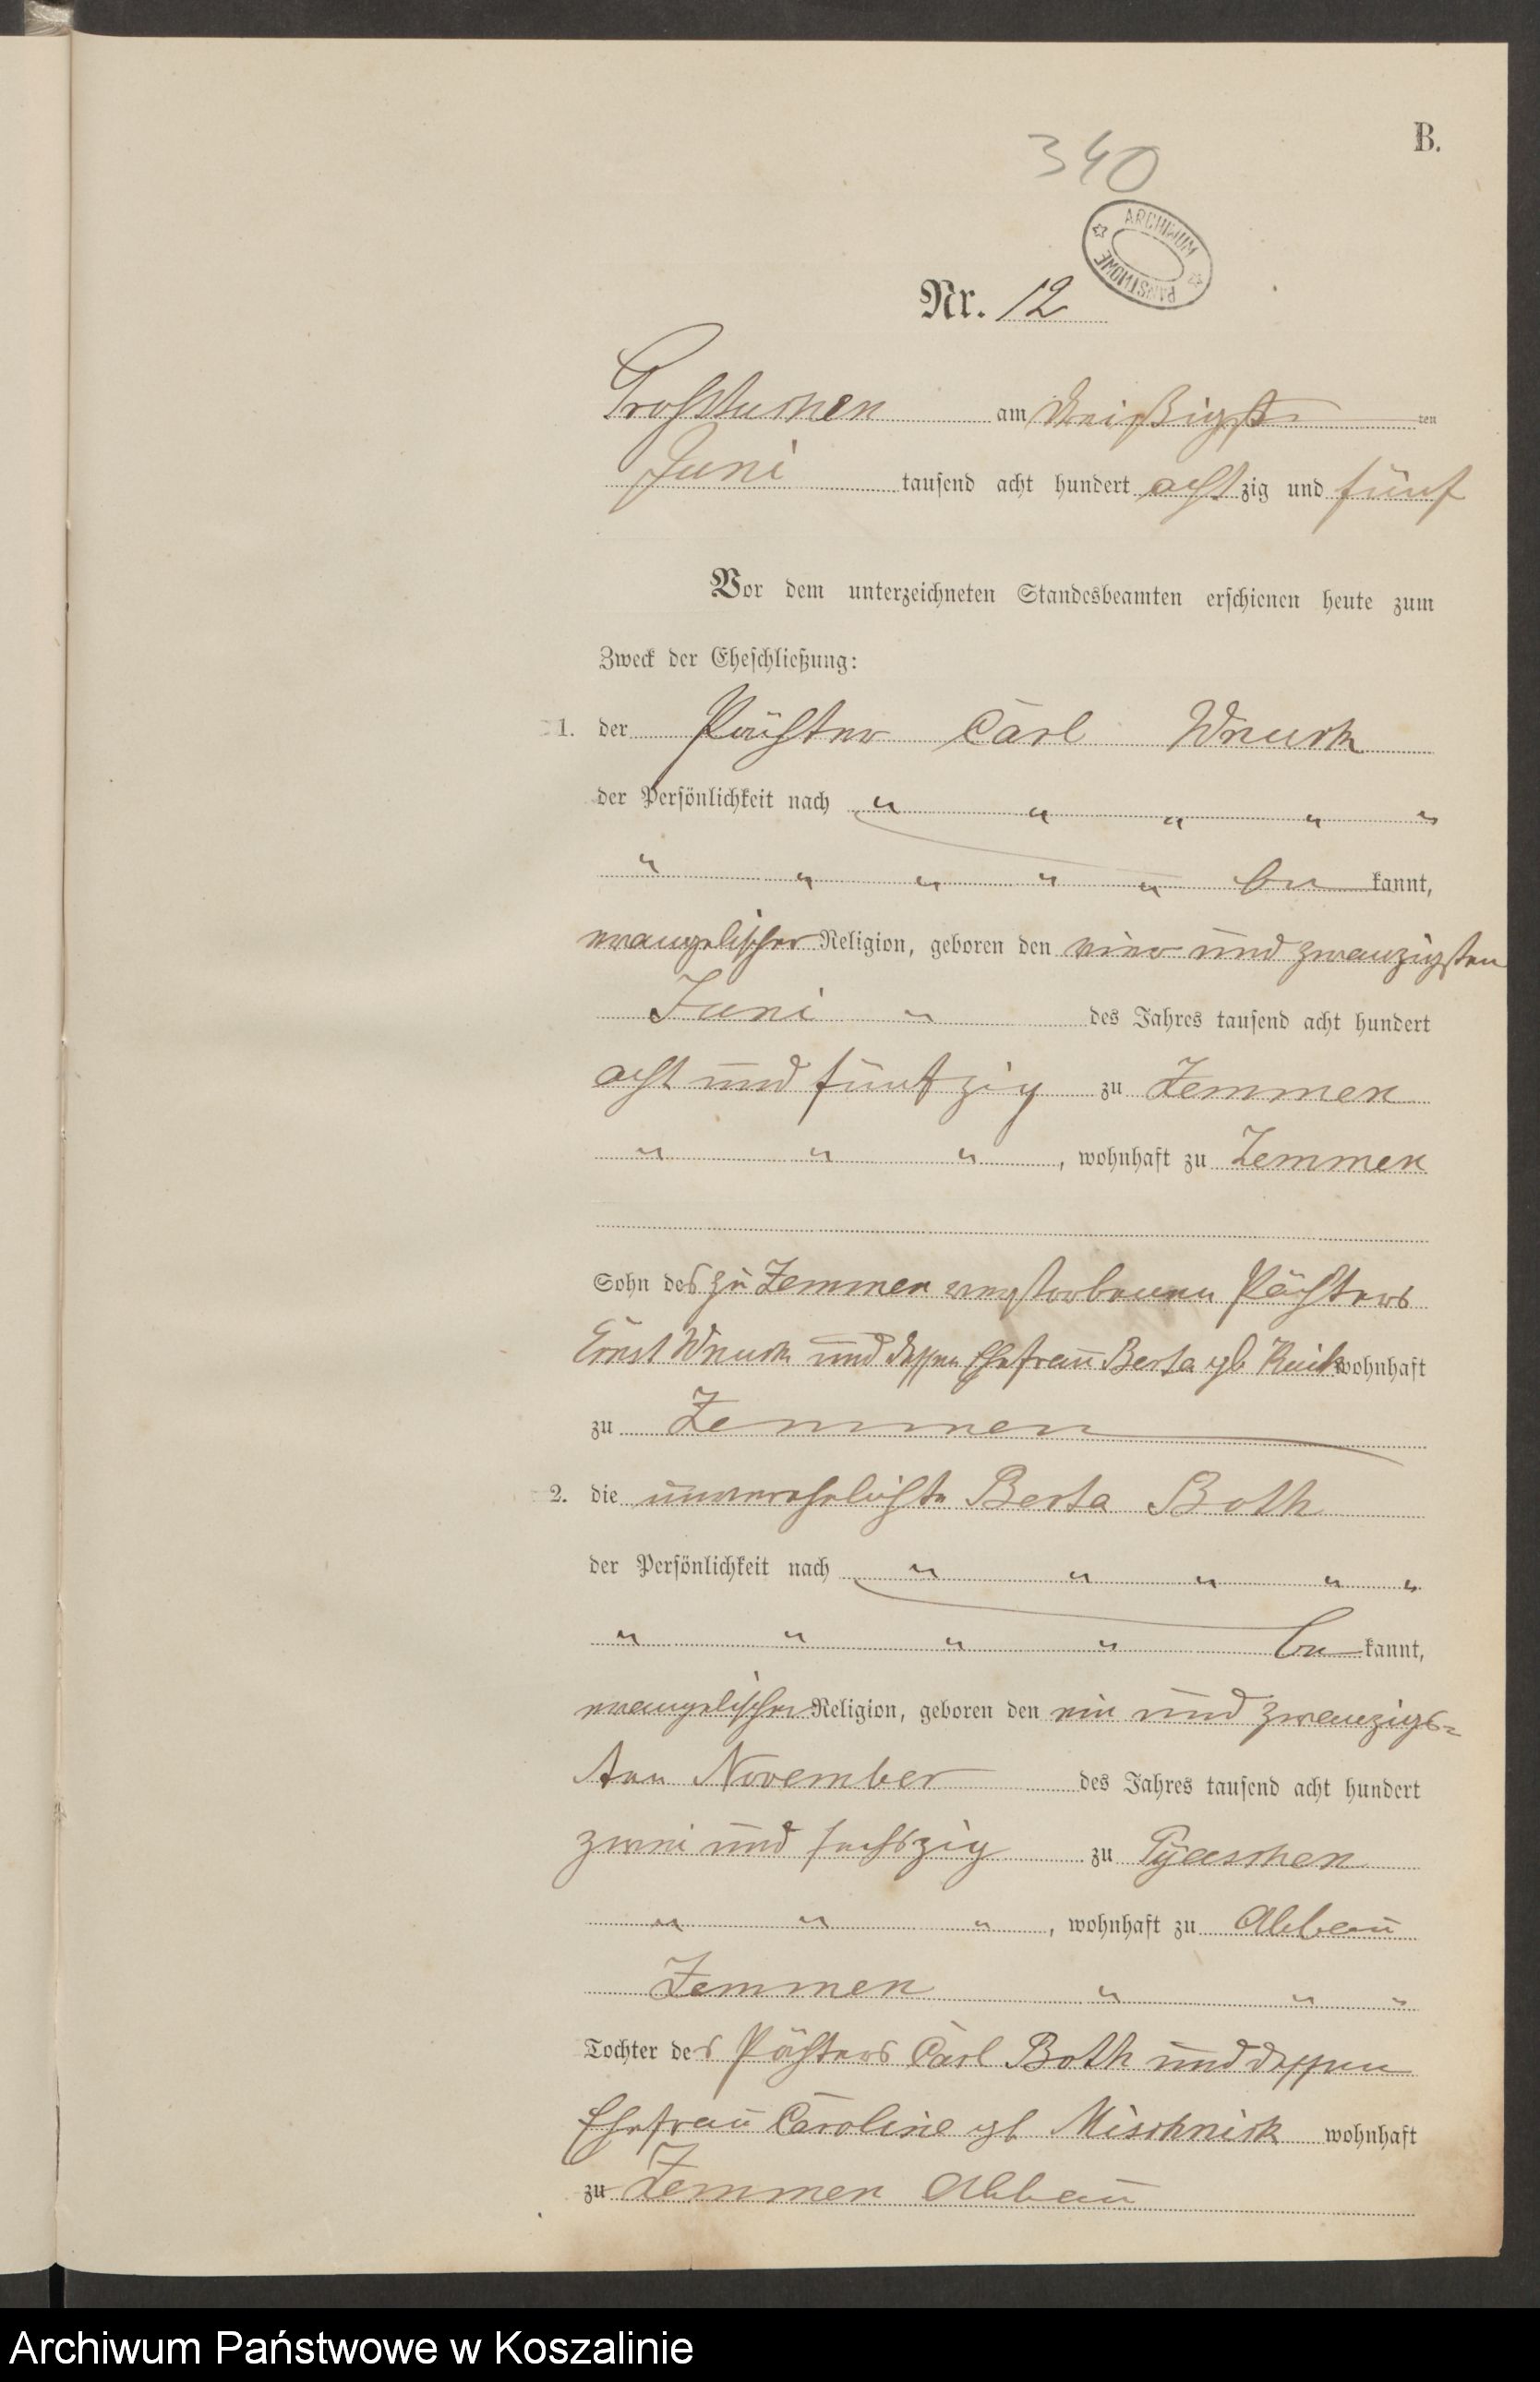 340
B.
ARCHIWUM
PAŃSTWOWE
Nr. 12
Großtuchen am dreißigsten
Juni tausend acht hundert achtzig und fünf
Vor dem unterzeichneten Standesbeamten erschienen heute zum
Zweck der Eheschließung:
1. der Pächter Carl Wnuck
der Persönlichkeit nach " " " " "
" " " " " be kannt,
evangelischer Religion, geboren den vier und zwanzigsten
Juni " des Jahres tausend acht hundert
acht und fünfzig zu Zemmen
" " " , wohnhaft zu Zemmen
Sohn des zu Zemmen verstorbenen Pächters
Ernst Wnuck und dessen Ehefrau Berta gb wohnhaft
zu Zemmen
2. die unverehelichte Berta Both
der Persönlichkeit nach " " " " "
" " " " be kannt,
evangelischer Religion, geboren den ein und zwanzigs=
ten November des Jahres tausend acht hundert
zwei und sechszig zu Pyaschen
" " " , wohnhaft zu Abbau
Zemmen " " "
Tochter des Pächters Carl Both und dessen
Ehefrau Caroline gb Mischnick wohnhaft
zu Zemmen Abbau
Archiwum Państwowe w Koszalinie